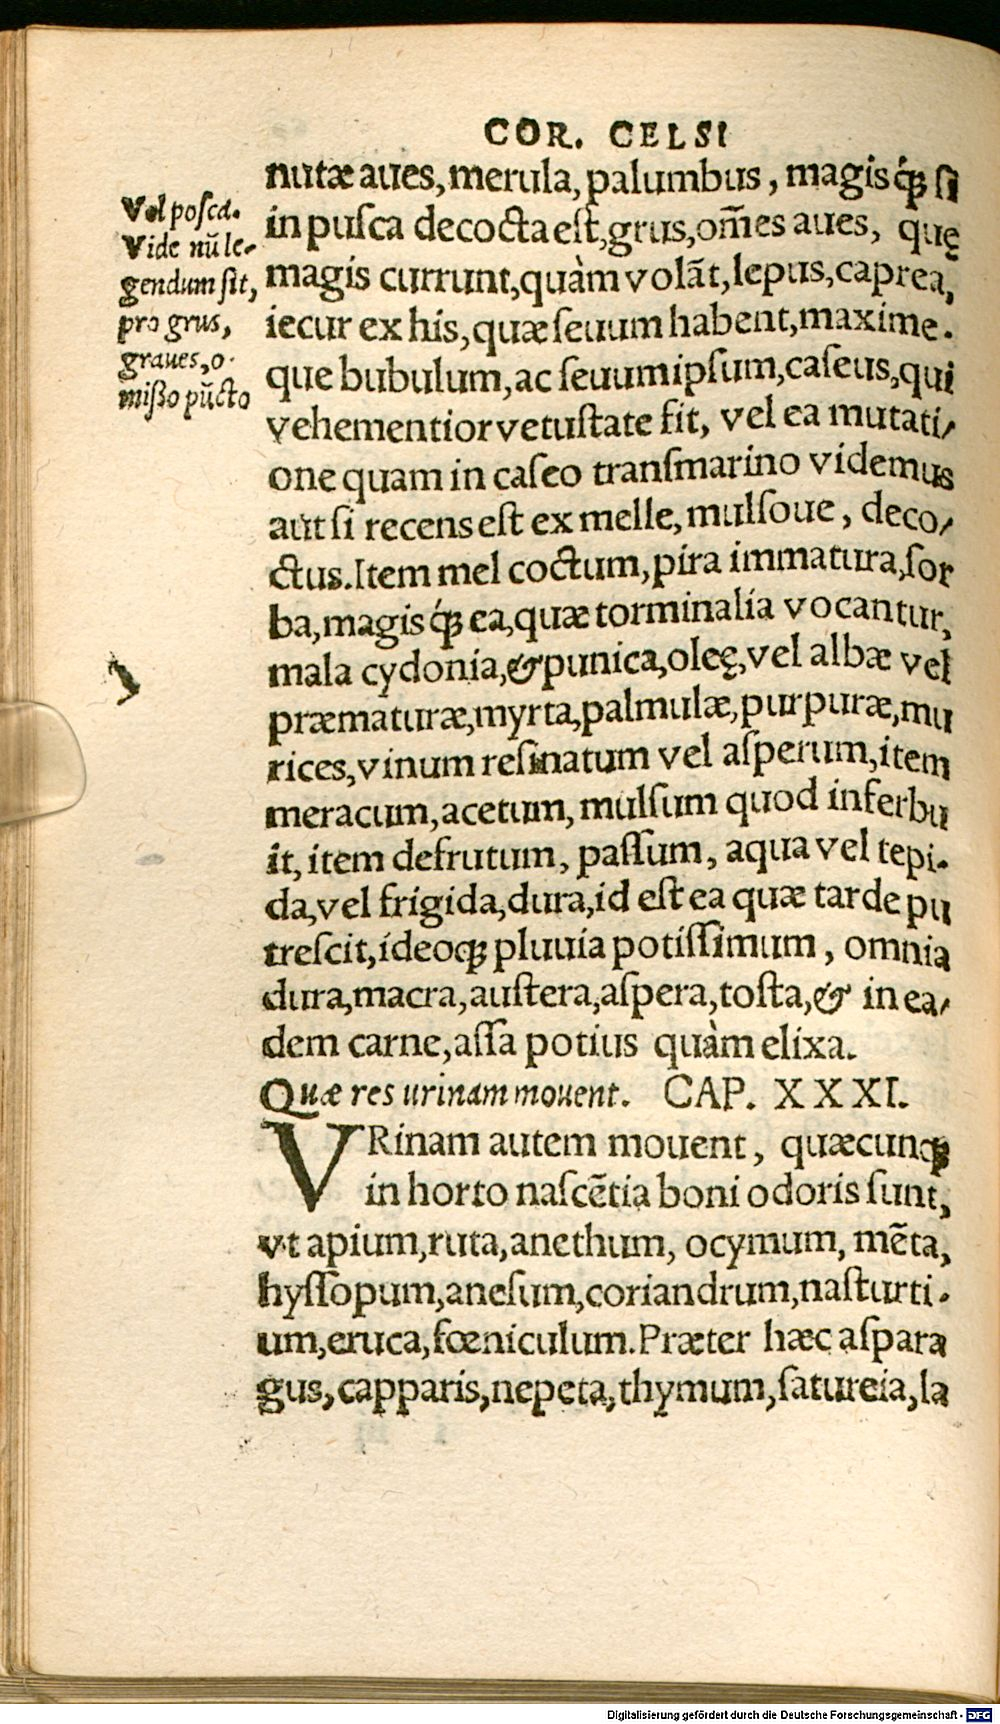 COR. CELSI
nutæ aues, merula, palumbus, magisq́ꝫ ſi
in puſca decocta eſt, grus, om̃es aues, quę
magis currunt, quàm volãt, lepus, caprea,
iecur ex his, quæ ſeuum habent, maxime.
que bubulum, ac ſeuum ipſum, caſeus, qui
vehementior vetuſtate fit, vel ea mutati/
one quam in caſeo tranſmarino videmus
aut ſi recens est ex melle, mulſoue, deco/
ctus. Item mel coctum, pira immatura, ſor
ba, magisq́ꝫ ea, quæ torminalia vocantur,
mala cydonia, & punica, oleę, vel albæ vel
præmaturæ, myrta, palmulæ, purpuræ, mu
rices, vinum reſinatum vel aſperum, item
meracum, acetum, mulſum quod inferbu
it, item defrutum, paſſum, aqua vel tepi.
da, vel frigida, dura, id eſt ea quæ tarde pu
treſcit, ideoqꝫ pluuia potiſſimum, omnia
dura, macra, auſtera, aſpera, toſta, & in ea/
dem carne, aſſa potius quàm elixa.
Quæ res urinam mouent. CAP. XXXI.
VRinam autem mouent, quæcunqꝫ
in horto naſcẽtia boni odoris ſunt,
vt apium, ruta, anethum, ocymum, mẽta,
hyſſopum, aneſum, coriandrum, naſturti.
um, eruca, fœniculum. Præter hæc aſpara
gus, capparis, nepeta, thymum, ſatureia, la
Vel poſca.
Vide nũ le-
gendum ſit,
pro grus,
graues, o.
mißo pũcto
Digitalisierung gefördert durch die Deutsche Forschungsgemeinschaft - DFG